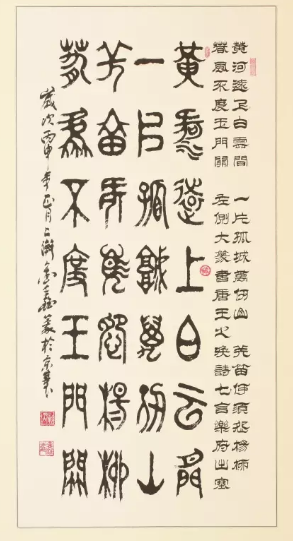 黃河遠上白雲間 一片孤城萬仞山 羌笛何須怨楊柳
春風不度玉門關 左側大篆書唐王之渙詩七言樂府出塞
黃河遠上白云間
一片孤城萬仞山
羌笛何須怨楊柳
春風不度玉門關
歲次丙申年正月上澣 篆於京華